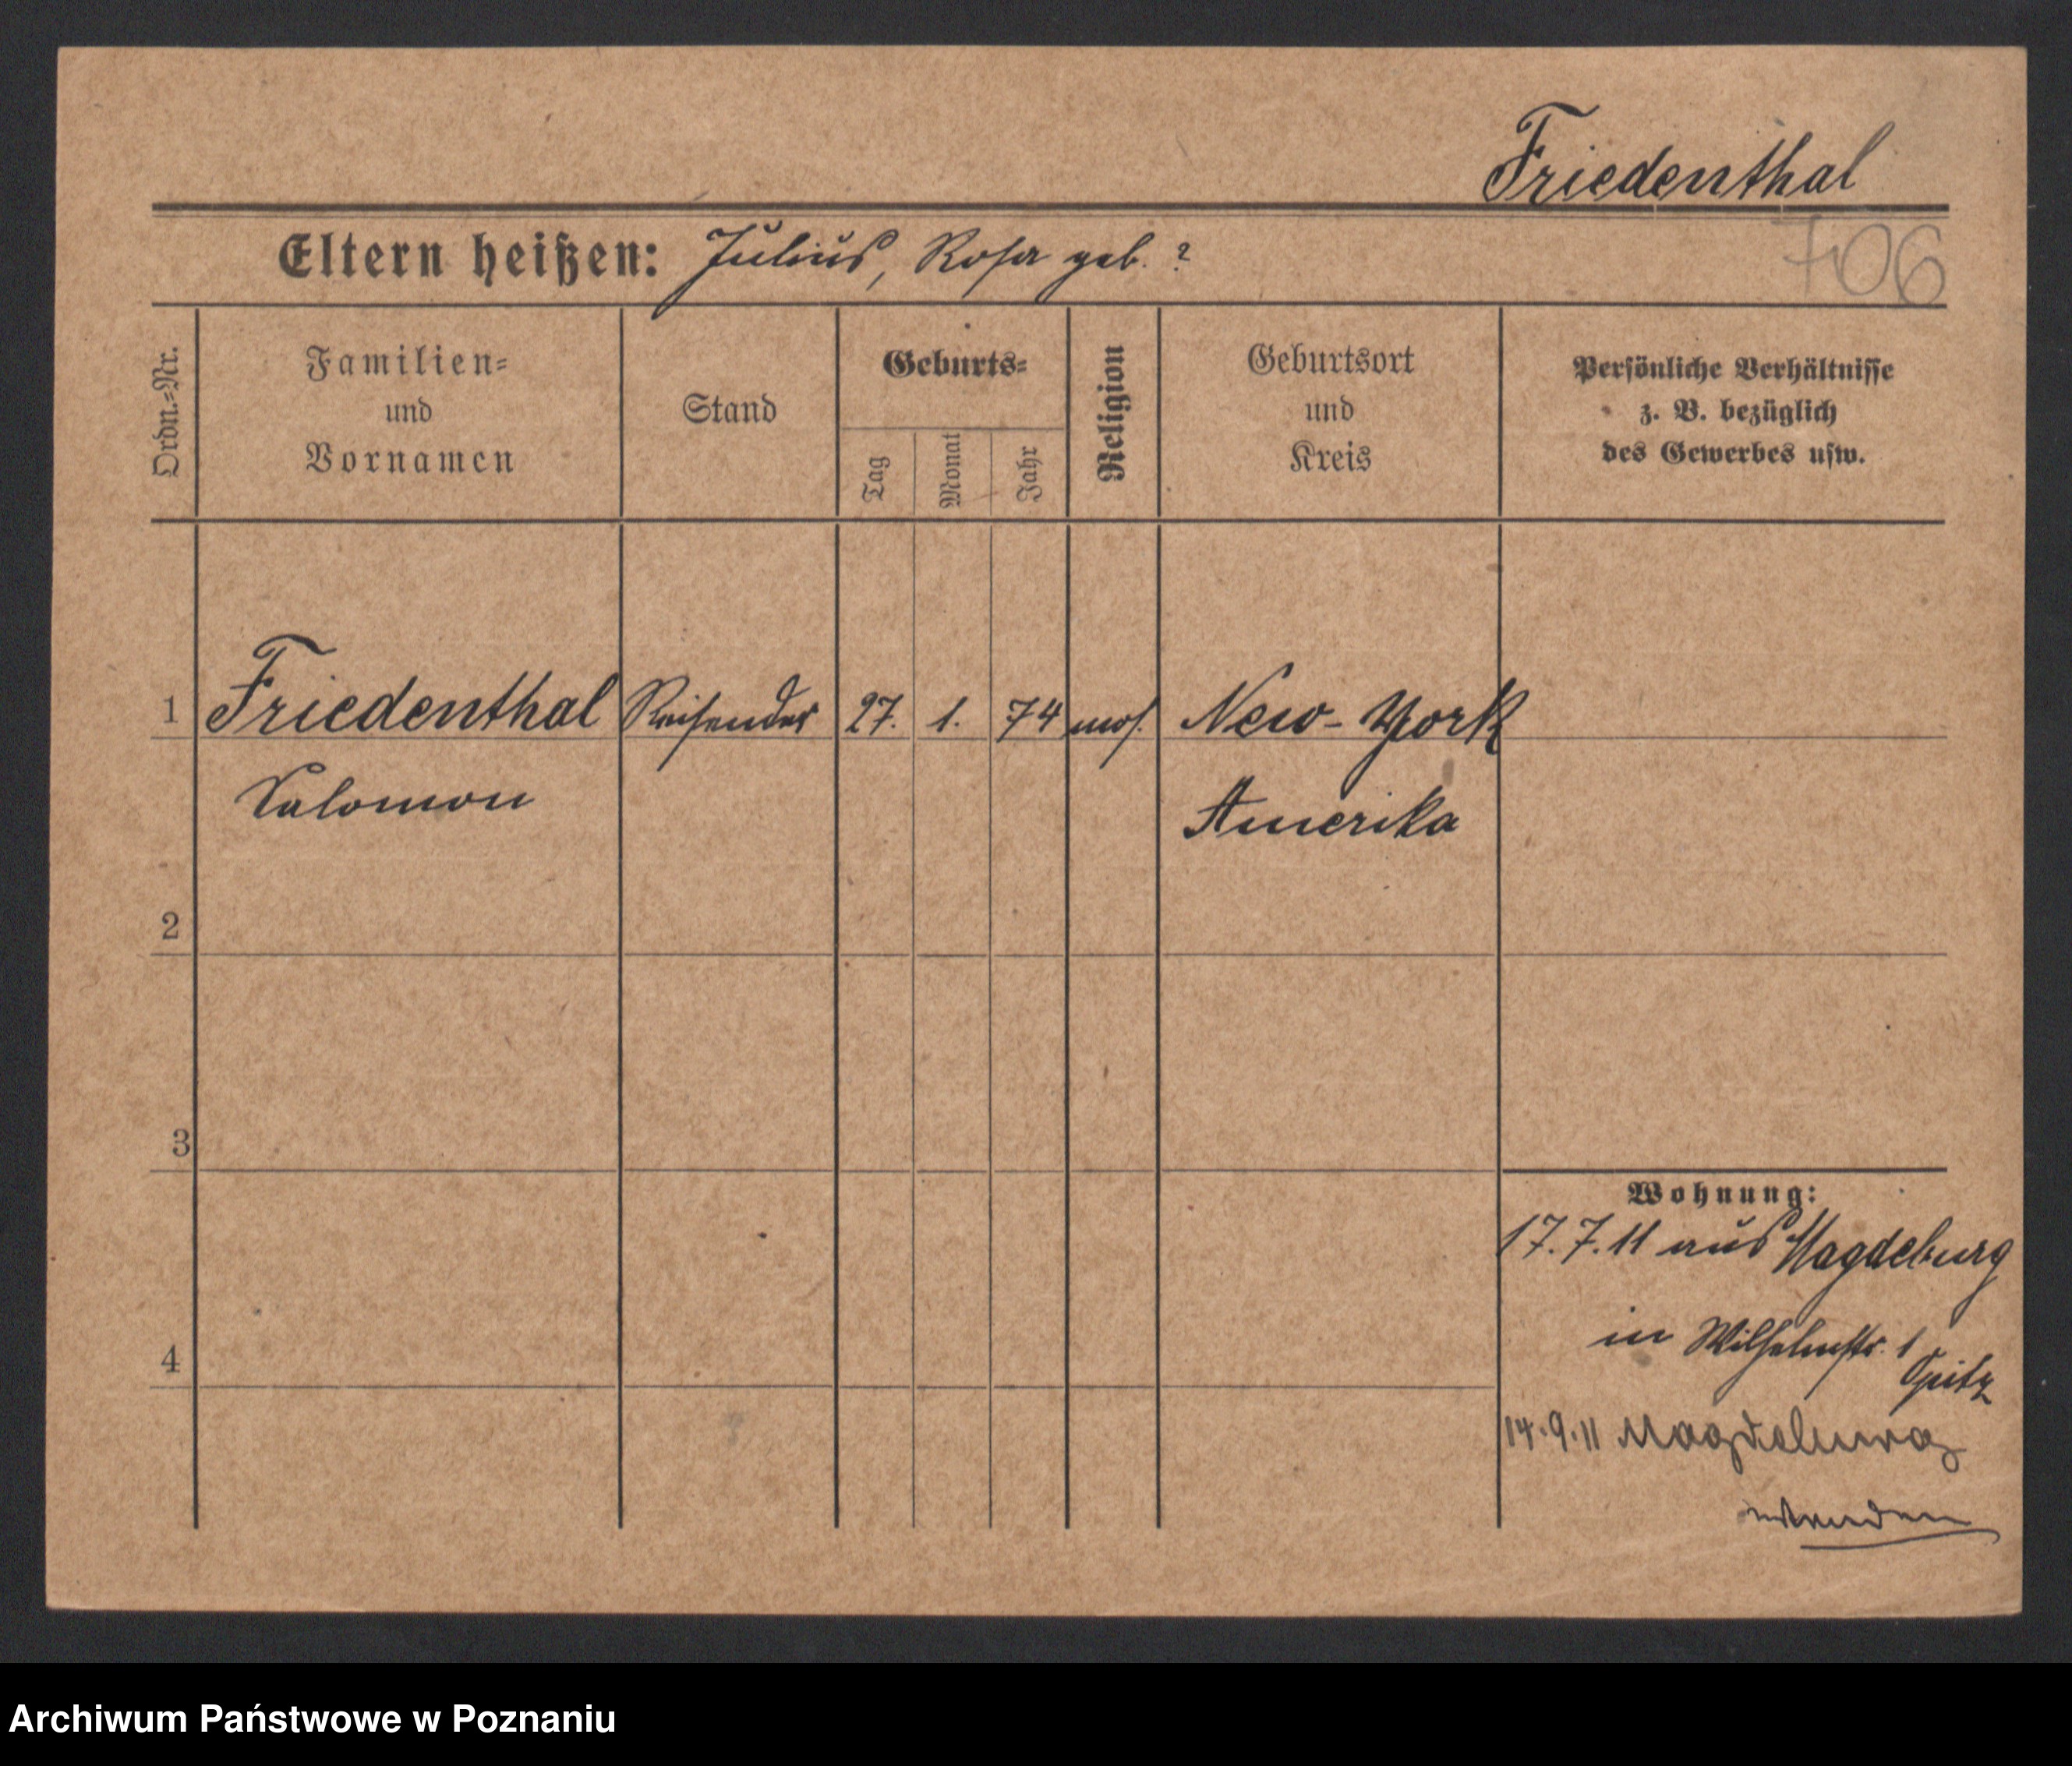 Friedenthal
Eltern heißen: Julius, Rosa geb. ?
706
Ordn.=Nr.
Familien=
und
Vornamen
Stand
Geburts=
Tag
Monat
Jahr
Religion
Geburtsort
und
Kreis
Persönliche Verhältnisse
z. B. bezüglich
des Gewerbes usw.
1 Friedenthal Reisender 27. 1. 74 mos. New-York
Salomon
Amerika
2
3
4
Wohnung:
17.7.11 aus Magdeburg
in Wilhelmstr. 1
Opitz
14.9.11 Magdeburg
Archiwum Państwowe w Poznaniu